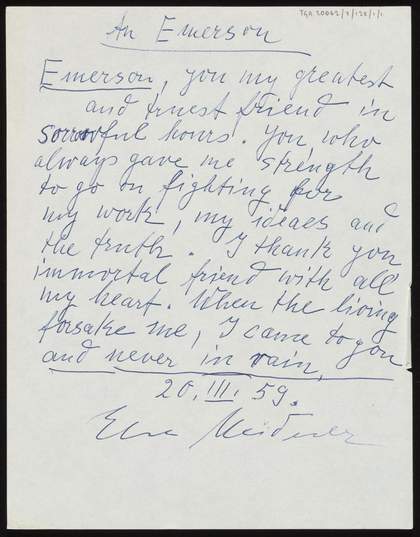 TGA 20062/3/128/1/1
An Emerson
Emerson, you my greatest
and truest friend in
sorrowful hours. You, who
always gave me strength
to go on fighting for
my work, my ideaes and
the truth. I thank you
immortal friend with all
my heart. When the living
forsake me, I came to you
and never in vain.
20. III. 59.
Else Meidner